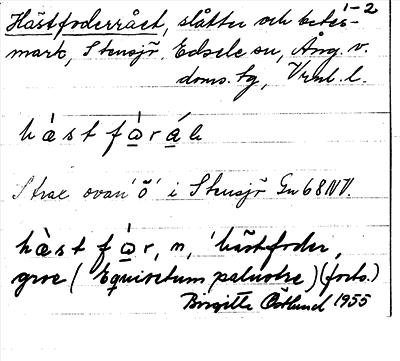 1-2
Hästfoderrået, slåtter och betes-
mark, Stensjö, Edsele sn, Ång. v.
doms. tg, Vrnl. l.
hàst fòrál
Strax ovan 'ö' i Stensjö Gn 68 NV.
hàst fòr, n, 'hästfoder,
groe (Equisetum palustre) (forts.)
Birgitta Östlund 1955